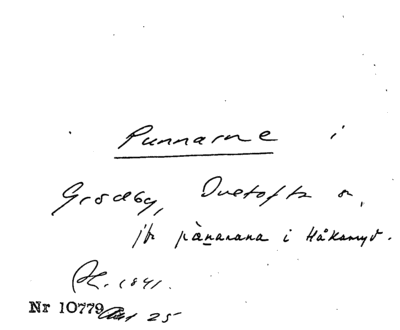 Punnarne i
Grödby, Duetofta s.,
jfr pànarana i Håkanryd.
1841.
Nr 10779 25